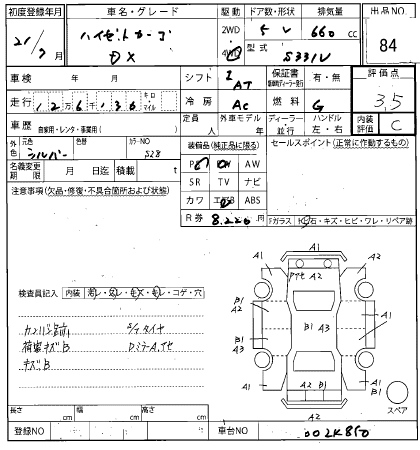 初度登録年月 車名・グレード 駆動 ドア数・形状 排気量 出品NO
21/7月 ハイゼットカーゴ DX 2WD 4WD 5 V 660 cc 84
型式 S331V
車検 年 月 シフト AT 保証書 有・無 評価点
走行 キロ マイル 冷房 AC 燃料 G 3.5
車歴 自家用・レンタ・事業用( ) 定員 人 外車モデル 年 ディーラー 並行 ハンドル 左・右 内装評価 C
外色 元色 シルバー カラーNO S28 装備品(純正品に限る) セールスポイント(正常に作動するもの)
AW
名義変更期限 月 日迄 積載 t SR TV ナビ
注意事項(欠品・修復・不具合箇所および状態) カワ ABS
R券 8,220 円 Fガラス
石・キズ・ヒビ・ワレ・リペア跡
検査員記入 内装
コゲ・穴
A1
A2
A1 A1
B1 A2 B1 A3 A1
B1 A3
荷室キズB
キズB
A1 A1
B1
A2 B1
A2
スペア
長さ cm 幅 cm 高さ cm
登録NO 車台NO 002K850